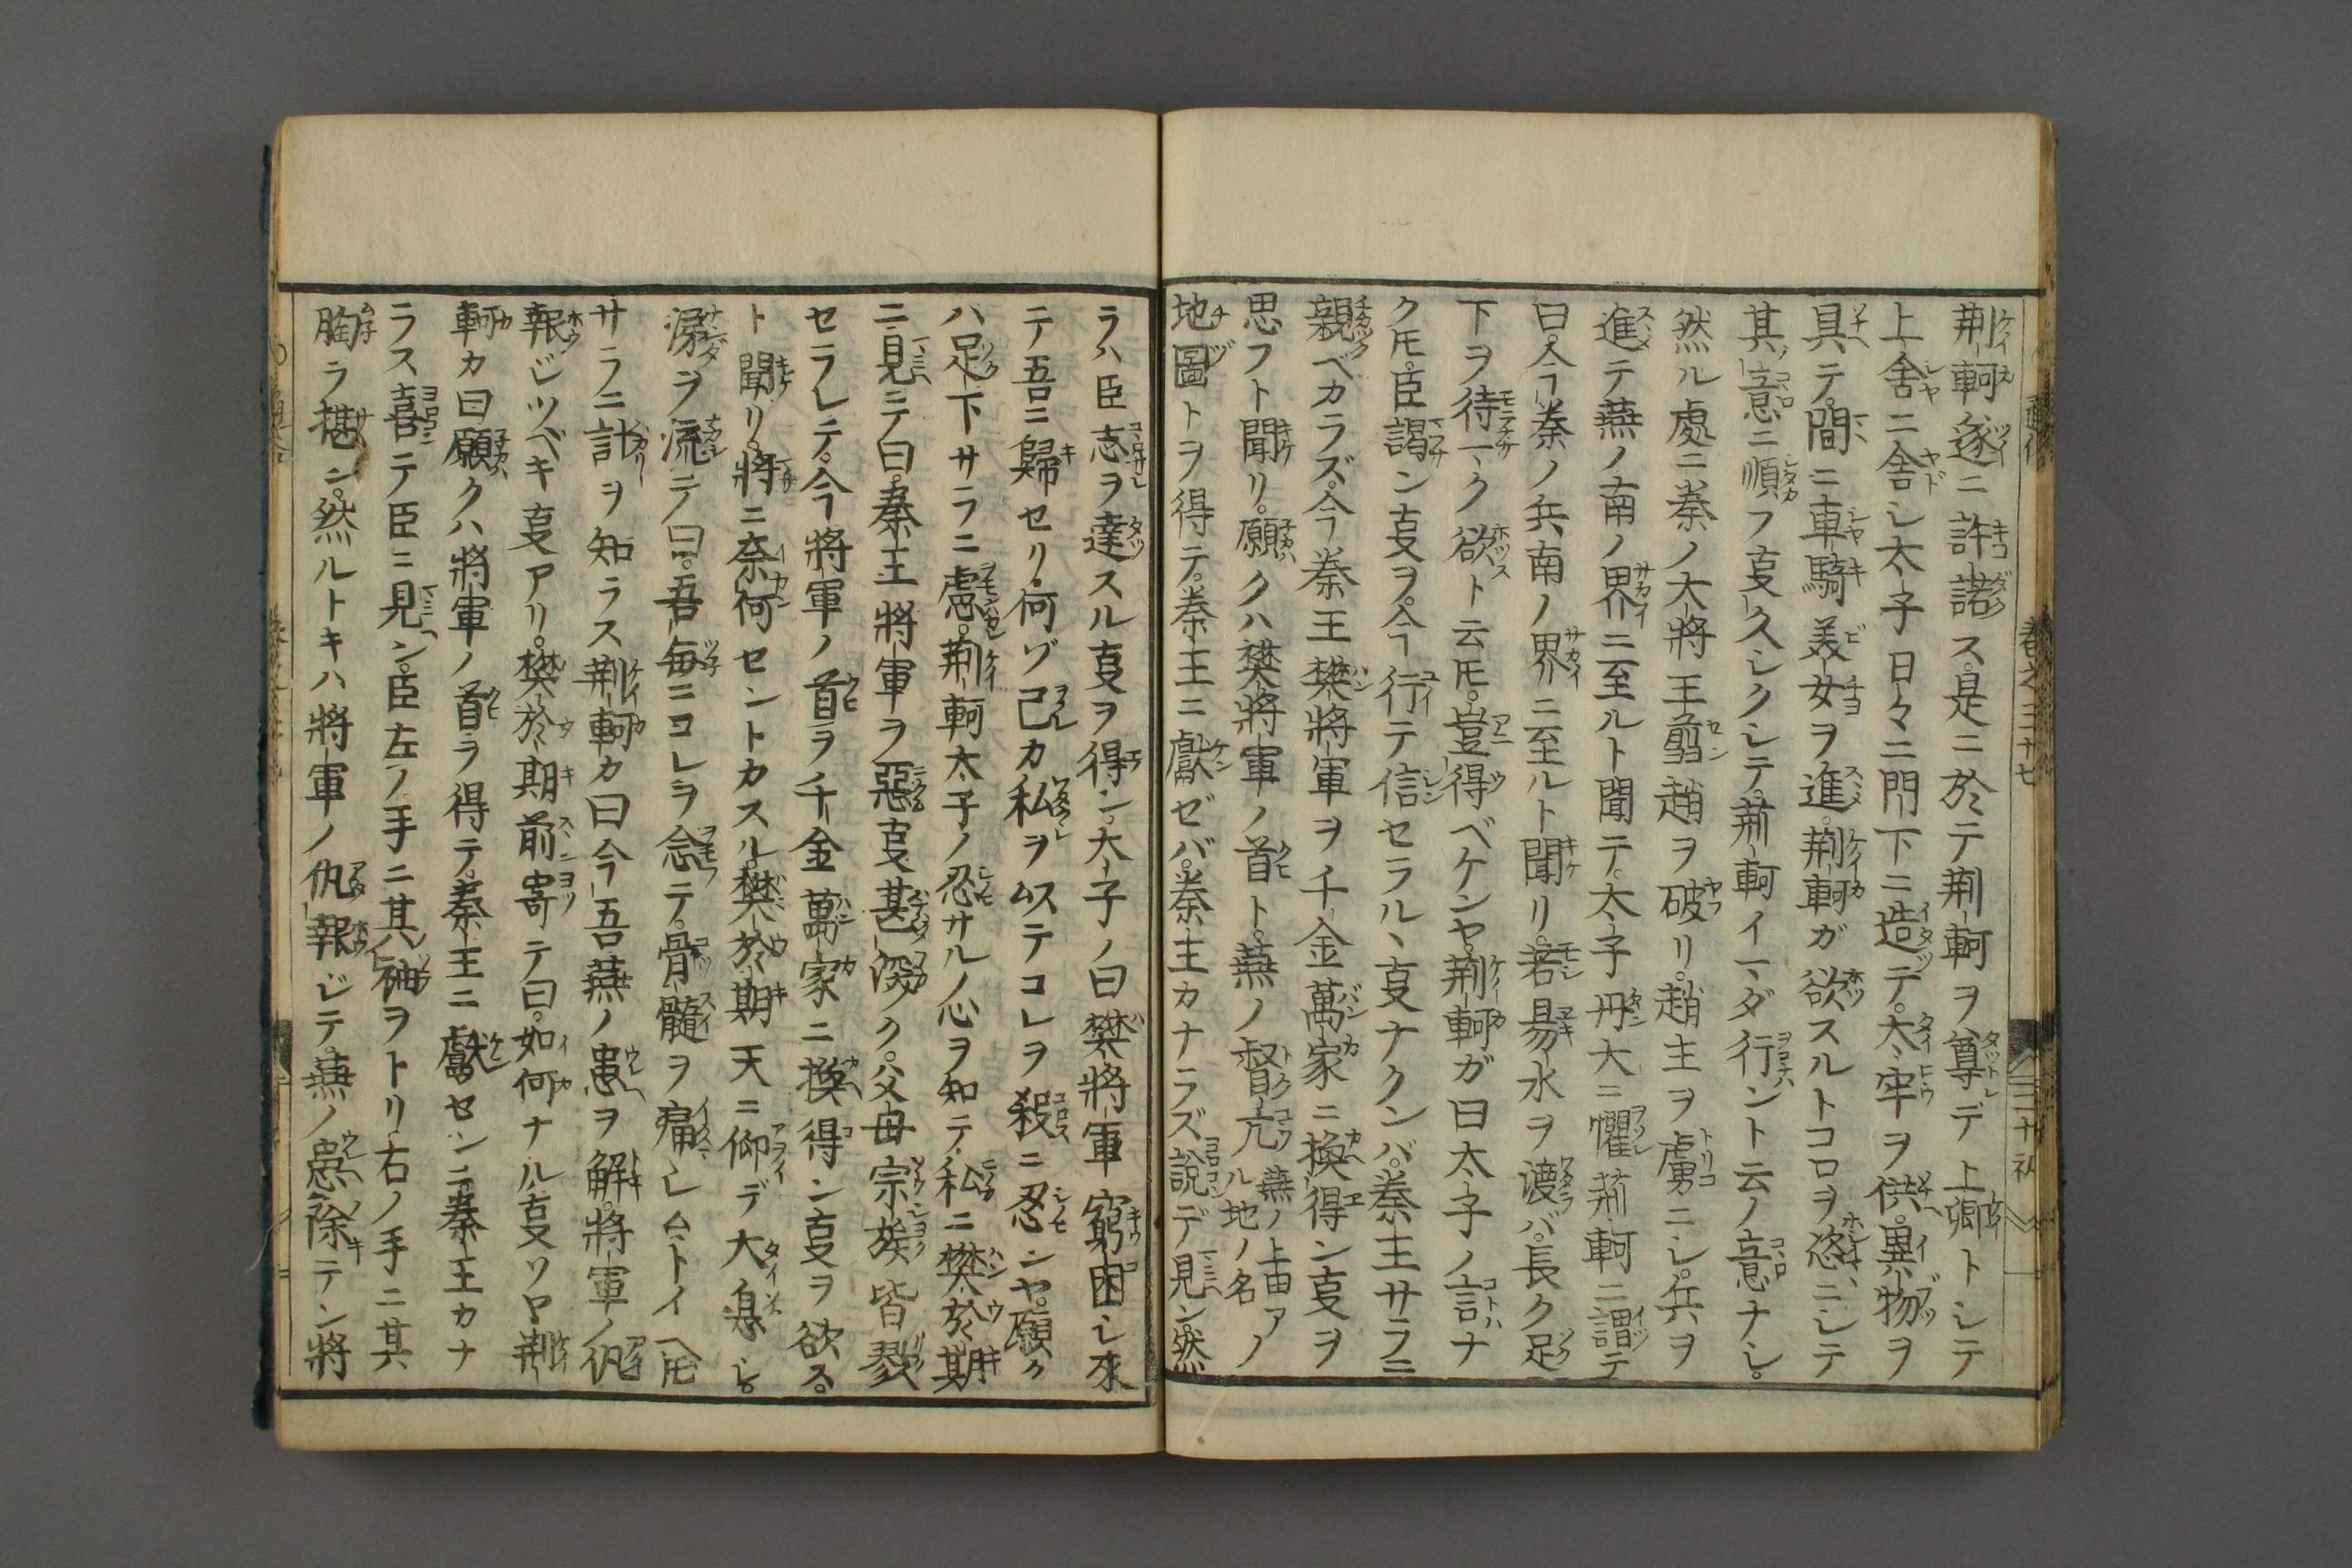 荆軻遂ニ許諾ス是ニ於テ荆軻ヲ尊デ上卿トシテ
上舍ニ舍シ太子日々ニ門下ニ造テ。太牢ヲ供。異物ヲ
具テ。間ニ車騎美女ヲ進。荆軻ガ欲スルトコロヲ恣ニシテ
其意ニ順フ叓久シクシテ。荆軻イマダ行ント云ノ意ナシ。
然ル處ニ秦ノ大將王翦趙ヲ破リ。趙主ヲ虜ニシ。兵ヲ
進テ燕ノ南ノ界ニ至ルト聞テ。太子丹大ニ懼荆軻ニ謂テ
曰。今秦ノ兵南ノ界ニ至ルト聞リ。若易水ヲ渡バ。長ク足
下ヲ待マク欲ト云𪜈。豈得ベケンヤ。荆軻ガ曰太子ノ言ナ
ク𪜈。臣謁ン叓ヲ。今行テ信セラルヽ叓ナクンバ。秦主サラニ
親ベカラズ。今秦王樊將軍ヲ千金萬家ニ換得ン叓ヲ
思フト聞リ。願クハ樊將軍ノ首ト。燕ノ督亢燕ノ上田アノル地ノ名
地圖トヲ得テ。秦王ニ獻ゼバ。秦主カナラズ説デ見ン。然
ラハ臣志ヲ達スル叓ヲ得ン。大子ノ曰樊將軍窮困シ來
テ吾ニ歸セリ。何ゾ己カ私ヲ以テコレヲ殺ニ忍ンヤ。願ク
ハ足下サラニ慮。荆軻太子ノ忍サルノ心ヲ知テ。私ニ樊於期
ニ見テ曰。秦王將軍ヲ惡叓甚深ク。父母宗族皆戮
セラレテ。今將軍ノ首ヲ千金萬家ニ換得ン叓ヲ欲る。
ト聞リ。將ニ奈何セントカスル。樊於期天ニ仰デ大息し。
涙ヲ流テ曰。吾毎ニコレヲ念テ。骨髓ヲ痛シムトイヘ𪜈
サラニ計ヲ知ラス荆軻カ曰今吾燕ノ患ヲ解。將軍ノ仇
報ジツベキ叓アリ。樊於期前寄テ曰。如何ナル叓ソヤ。荆
軻カ曰願クハ將軍ノ首ヲ得テ。秦王ニ獻センニ秦王カナ
ラス喜テ臣ニ見ン。臣左ノ手ニ其袖ヲトリ右ノ手ニ其
胸ヲ揕ン。然ルトキハ將軍ノ仇報ジテ。燕ノ患除テン將